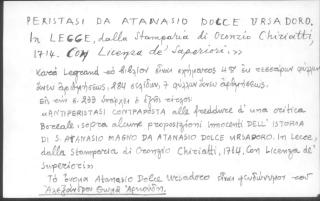 PERISTASI DA ATANASIO DOLCE URSADORO.
In LEGGE, dalla Stamparia di Oronzio Chiriatti,
1714. Con Licenza de' Superiori.»
Κατὰ Legrand τὸ βιβλίον εἶναι σχήματος 4ον ἐκ τεσσάρων φύλλων
ἄνευ ἀριθμήσεως, 284 σελίδων, 7 φύλλων ἄνευ ἀριθμήσεως.
Εἰς τὴν σ. 233 ὑπάρχει ὁ ἑξῆς τίτλος:
«ANTIPERISTASI CONTRAPOSTA alle freddure d' una critica
Boreale sopra alcune proposizioni innocenti DELL' ISTORIA
DI S. ATANASIO MAGNO DA ATANASIO DOLCE URSADORO. In Lecce,
dalla Stamparia di Oronzio Chiriatti, 1714, Con Licenza de'
superiori»
Τὸ ὄνομα Atanasio Dolce Ursadoro εἶναι ψευδώνυμον τοῦ
Ἀλεξάνδρου Θωμᾶ